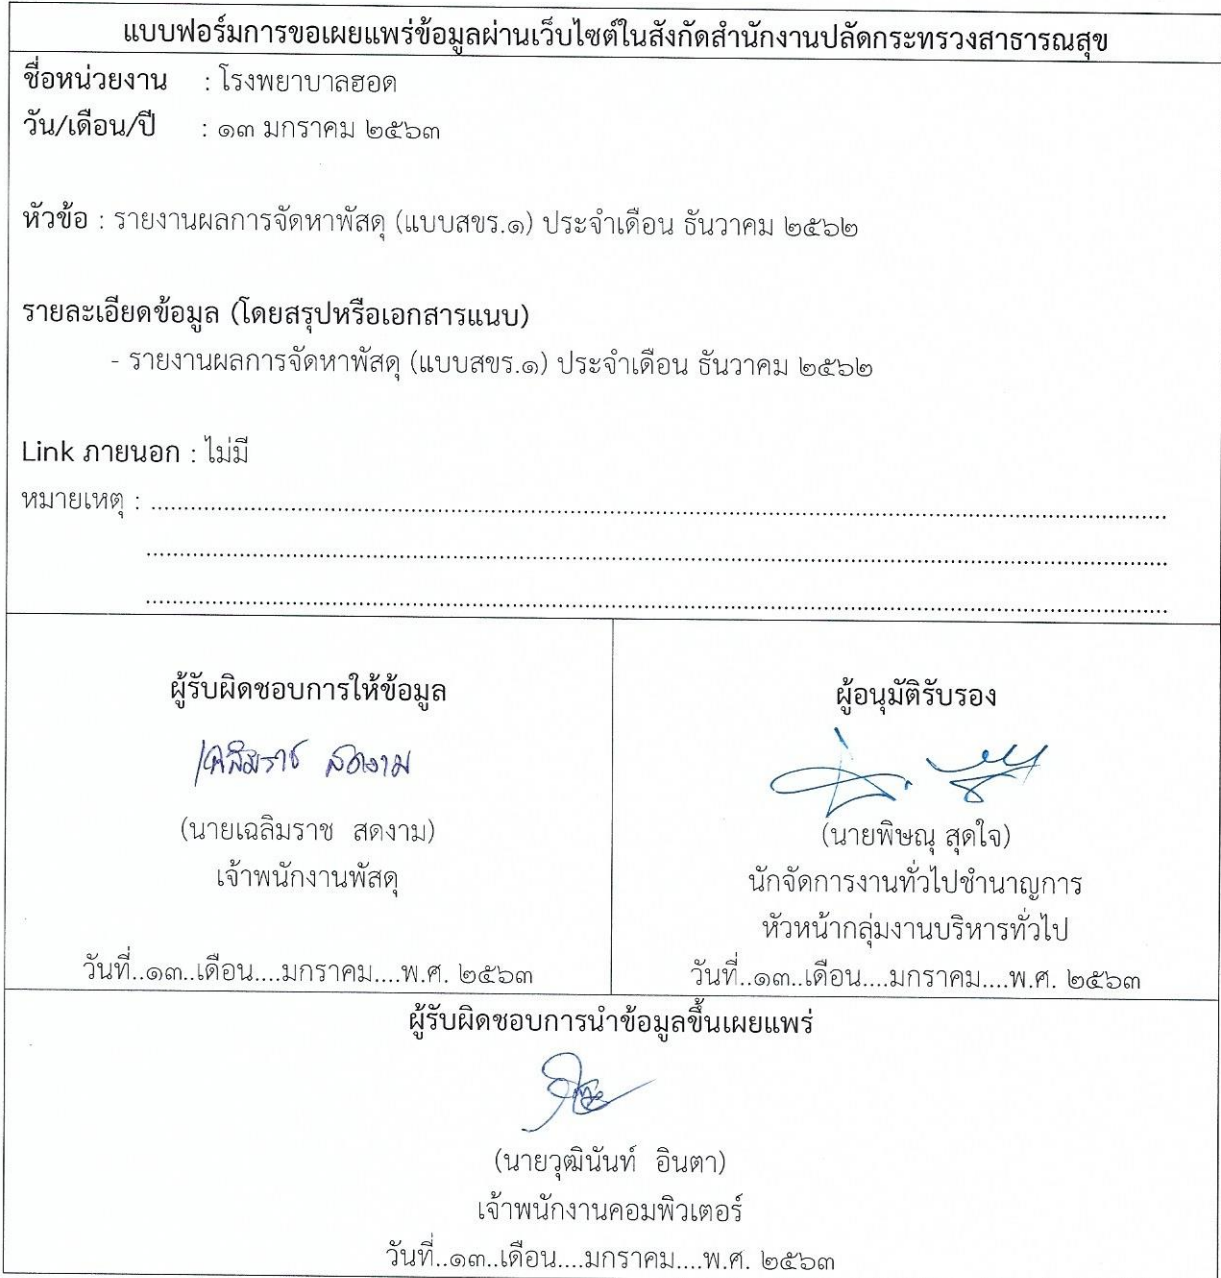 แบบฟอร์มการขอเผยแพร่ข้อมูลผ่านเว็บไซต์ในสังกัดสำนักงานปลัดกระทรวงสาธารณสุข
ชื่อหน่วยงาน : โรงพยาบาลฮอด
วัน/เดือน/ปี : ๑๓ มกราคม ๒๕๖๓
หัวข้อ : รายงานผลการจัดหาพัสดุ (แบบสขร.๑) ประจำเดือน ธันวาคม ๒๕๖๒
รายละเอียดข้อมูล (โดยสรุปหรือเอกสารแนบ)
- รายงานผลการจัดหาพัสดุ (แบบสขร.๑) ประจำเดือน ธันวาคม ๒๕๖๒
Link ภายนอก : ไม่มี
หมายเหตุ :
ผู้รับผิดชอบการให้ข้อมูล
เฉลิมราช สดงาม
(นายเฉลิมราช สดงาม)
เจ้าพนักงานพัสดุ
วันที่..๑๓..เดือน....มกราคม....พ.ศ. ๒๕๖๓
ผู้อนุมัติรับรอง
(นายพิษณุ สุดใจ)
นักจัดการงานทั่วไปชำนาญการ
หัวหน้ากลุ่มงานบริหารทั่วไป
วันที่..๑๓..เดือน....มกราคม....พ.ศ. ๒๕๖๓
ผู้รับผิดชอบการนำข้อมูลขึ้นเผยแพร่
(นายวุฒินันท์ อินตา)
เจ้าพนักงานคอมพิวเตอร์
วันที่..๑๓..เดือน....มกราคม....พ.ศ. ๒๕๖๓